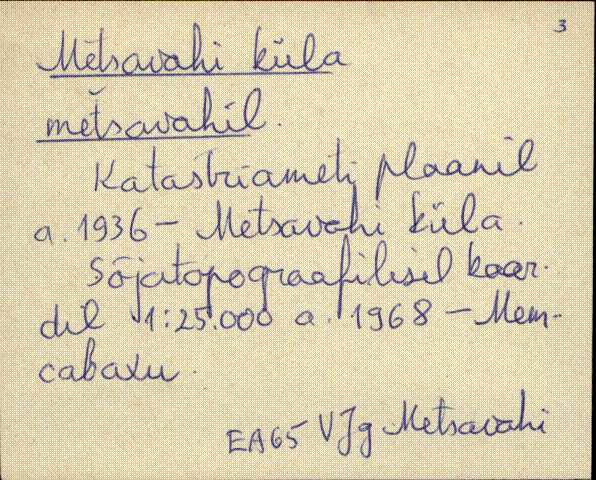 3
Metsavahi küla
mètšavahil.
Katastriameti plaanil
a. 1936 – Metsavahi küla.
Sõjatopograafilisel kaar-
dil 1:25.000 a. 1968 – Мет-
савахи.
EA65 VJg Metsavahi